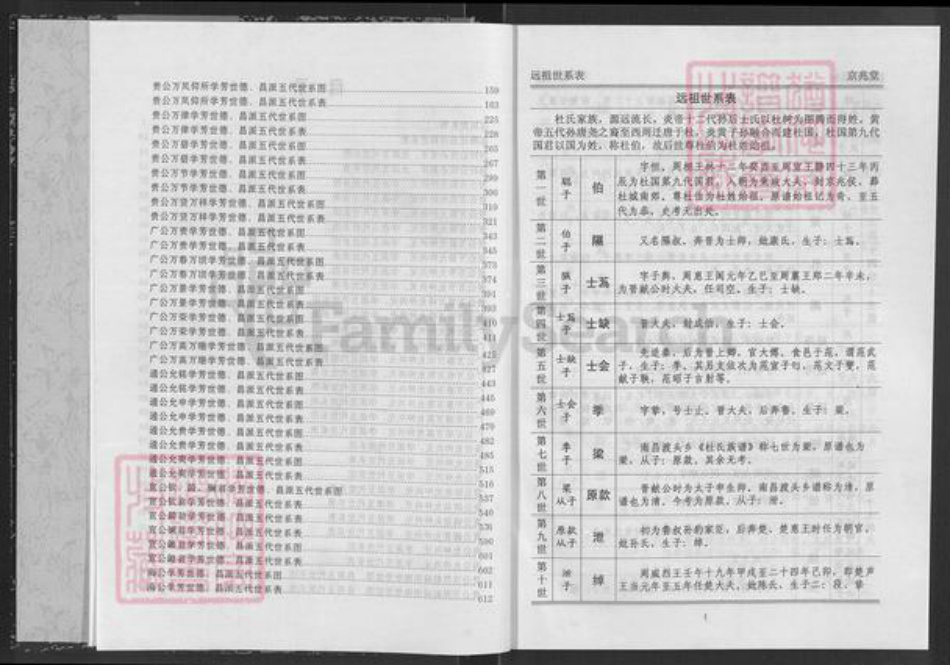 贵公万凤仰所学芳世德、昌派五代世系图 159
贵公万凤仰所学芳世德、昌派五代世系表 163
贵公万律学芳世德、昌派五代世系图 225
贵公万律学芳世德、昌派五代世系表 228
贵公万爵学芳世德、昌派五代世系图 265
贵公万爵学芳世德、昌派五代世系表 267
贵公万节学芳世德、昌派五代世系图 299
贵公万节学芳世德、昌派五代世系表 300
贵公万贤万祥学芳世德、昌派五代世系图 319
贵公万贤万祥学芳世德、昌派五代世系表 321
广公万贵学芳世德、昌派五代世系图 343
广公万贵学芳世德、昌派五代世系表 345
广公万春万顷学芳世德、昌派五代世系图 373
广公万春万顷学芳世德、昌派五代世系表 374
广公万景学芳世德、昌派五代世系图 391
广公万景学芳世德、昌派五代世系表 393
广公万荣学芳世德、昌派五代世系图 410
广公万荣学芳世德、昌派五代世系表 411
广公万高万继学芳世德、昌派五代世系图 425
广公万高万继学芳世德、昌派五代世系表 427
通公允铭学芳世德、昌派五代世系图 443
通公允铭学芳世德、昌派五代世系表 445
通公允申学芳世德、昌派五代世系图 469
通公允申学芳世德、昌派五代世系表 470
通公允贵学芳世德、昌派五代世系图 482
通公允贵学芳世德、昌派五代世系表 485
学芳世德、昌派五代世系图 515
学芳世德、昌派五代世系表 516
学芳世德、昌派五代世系图 537
学芳世德、昌派五代世系表 540
学芳世德、昌派五代世系图
学芳世德、昌派五代世系表 590
学芳世德、昌派五代世系图 601
学芳世德、昌派五代世系表 602
学芳世德、昌派五代世系图 611
学芳世德、昌派五代世系表 612
远祖世系表 京兆堂
远祖世系表
杜氏家族，源远流长，炎帝十二代孙后土氏以杜树为图腾而得姓，黄
帝五代孙唐尧之裔至西周迁唐于杜，炎黄子孙融合而建杜国，杜国第九代
国君以国为姓，称杜伯，故后世尊杜伯为杜姓始祖。
第一世 聪子 伯
字恒，周桓王林十二年癸酉至周宣王静四十三年丙
辰为杜国第九代国君，入朝为
杜城南郊。尊杜伯为杜姓始祖，原谱始祖记为奇，至五
代为泰，史考无出处。
第二世 伯子 隰
又名隰叔，奔晋为士师，妣康氏，生子：士蒍。
第三世 隰子 士蒍
字子舆，周惠王阆元年乙巳至周襄王郑二年辛未，
为晋献公时大夫，任司空。生子：士缺。
第四世 士蒍子 士缺
晋大夫，妣成伯，生子：士会。
第五世 士缺子 士会
先边秦，后为晋上卿，官大傅，食邑于范，谓范武
子，生子：季，其后支依次为范宣子匄，范文子燮，范
献子鞅，范昭子吉射等。
第六世 士会子 季
字挚，号士止，晋大夫，后奔鲁，生子：梁。
第七世 季子 梁
南昌渡头乡《杜氏族谱》称七世为梁，原谱也为
梁，从子：原款，其余无考。
第八世 梁从子 原款
晋献公时为太子申生师，南昌渡头乡谱称为
谱也为清，今考为原款，从子：泄。
第九世 原款从子 泄
初为鲁叔孙豹家臣，后奔楚，楚惠王时任为朝官，
妣孙氏，生子：绰。
第十世 泄子 绰
周威烈王壬午十九年甲戌至二十四年己卯，即楚声
王当元年至五年任楚大夫，妣陈氏，生子二：段、挚
1
FamilySearch